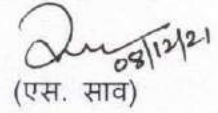 08/12/21
(एस. साव)